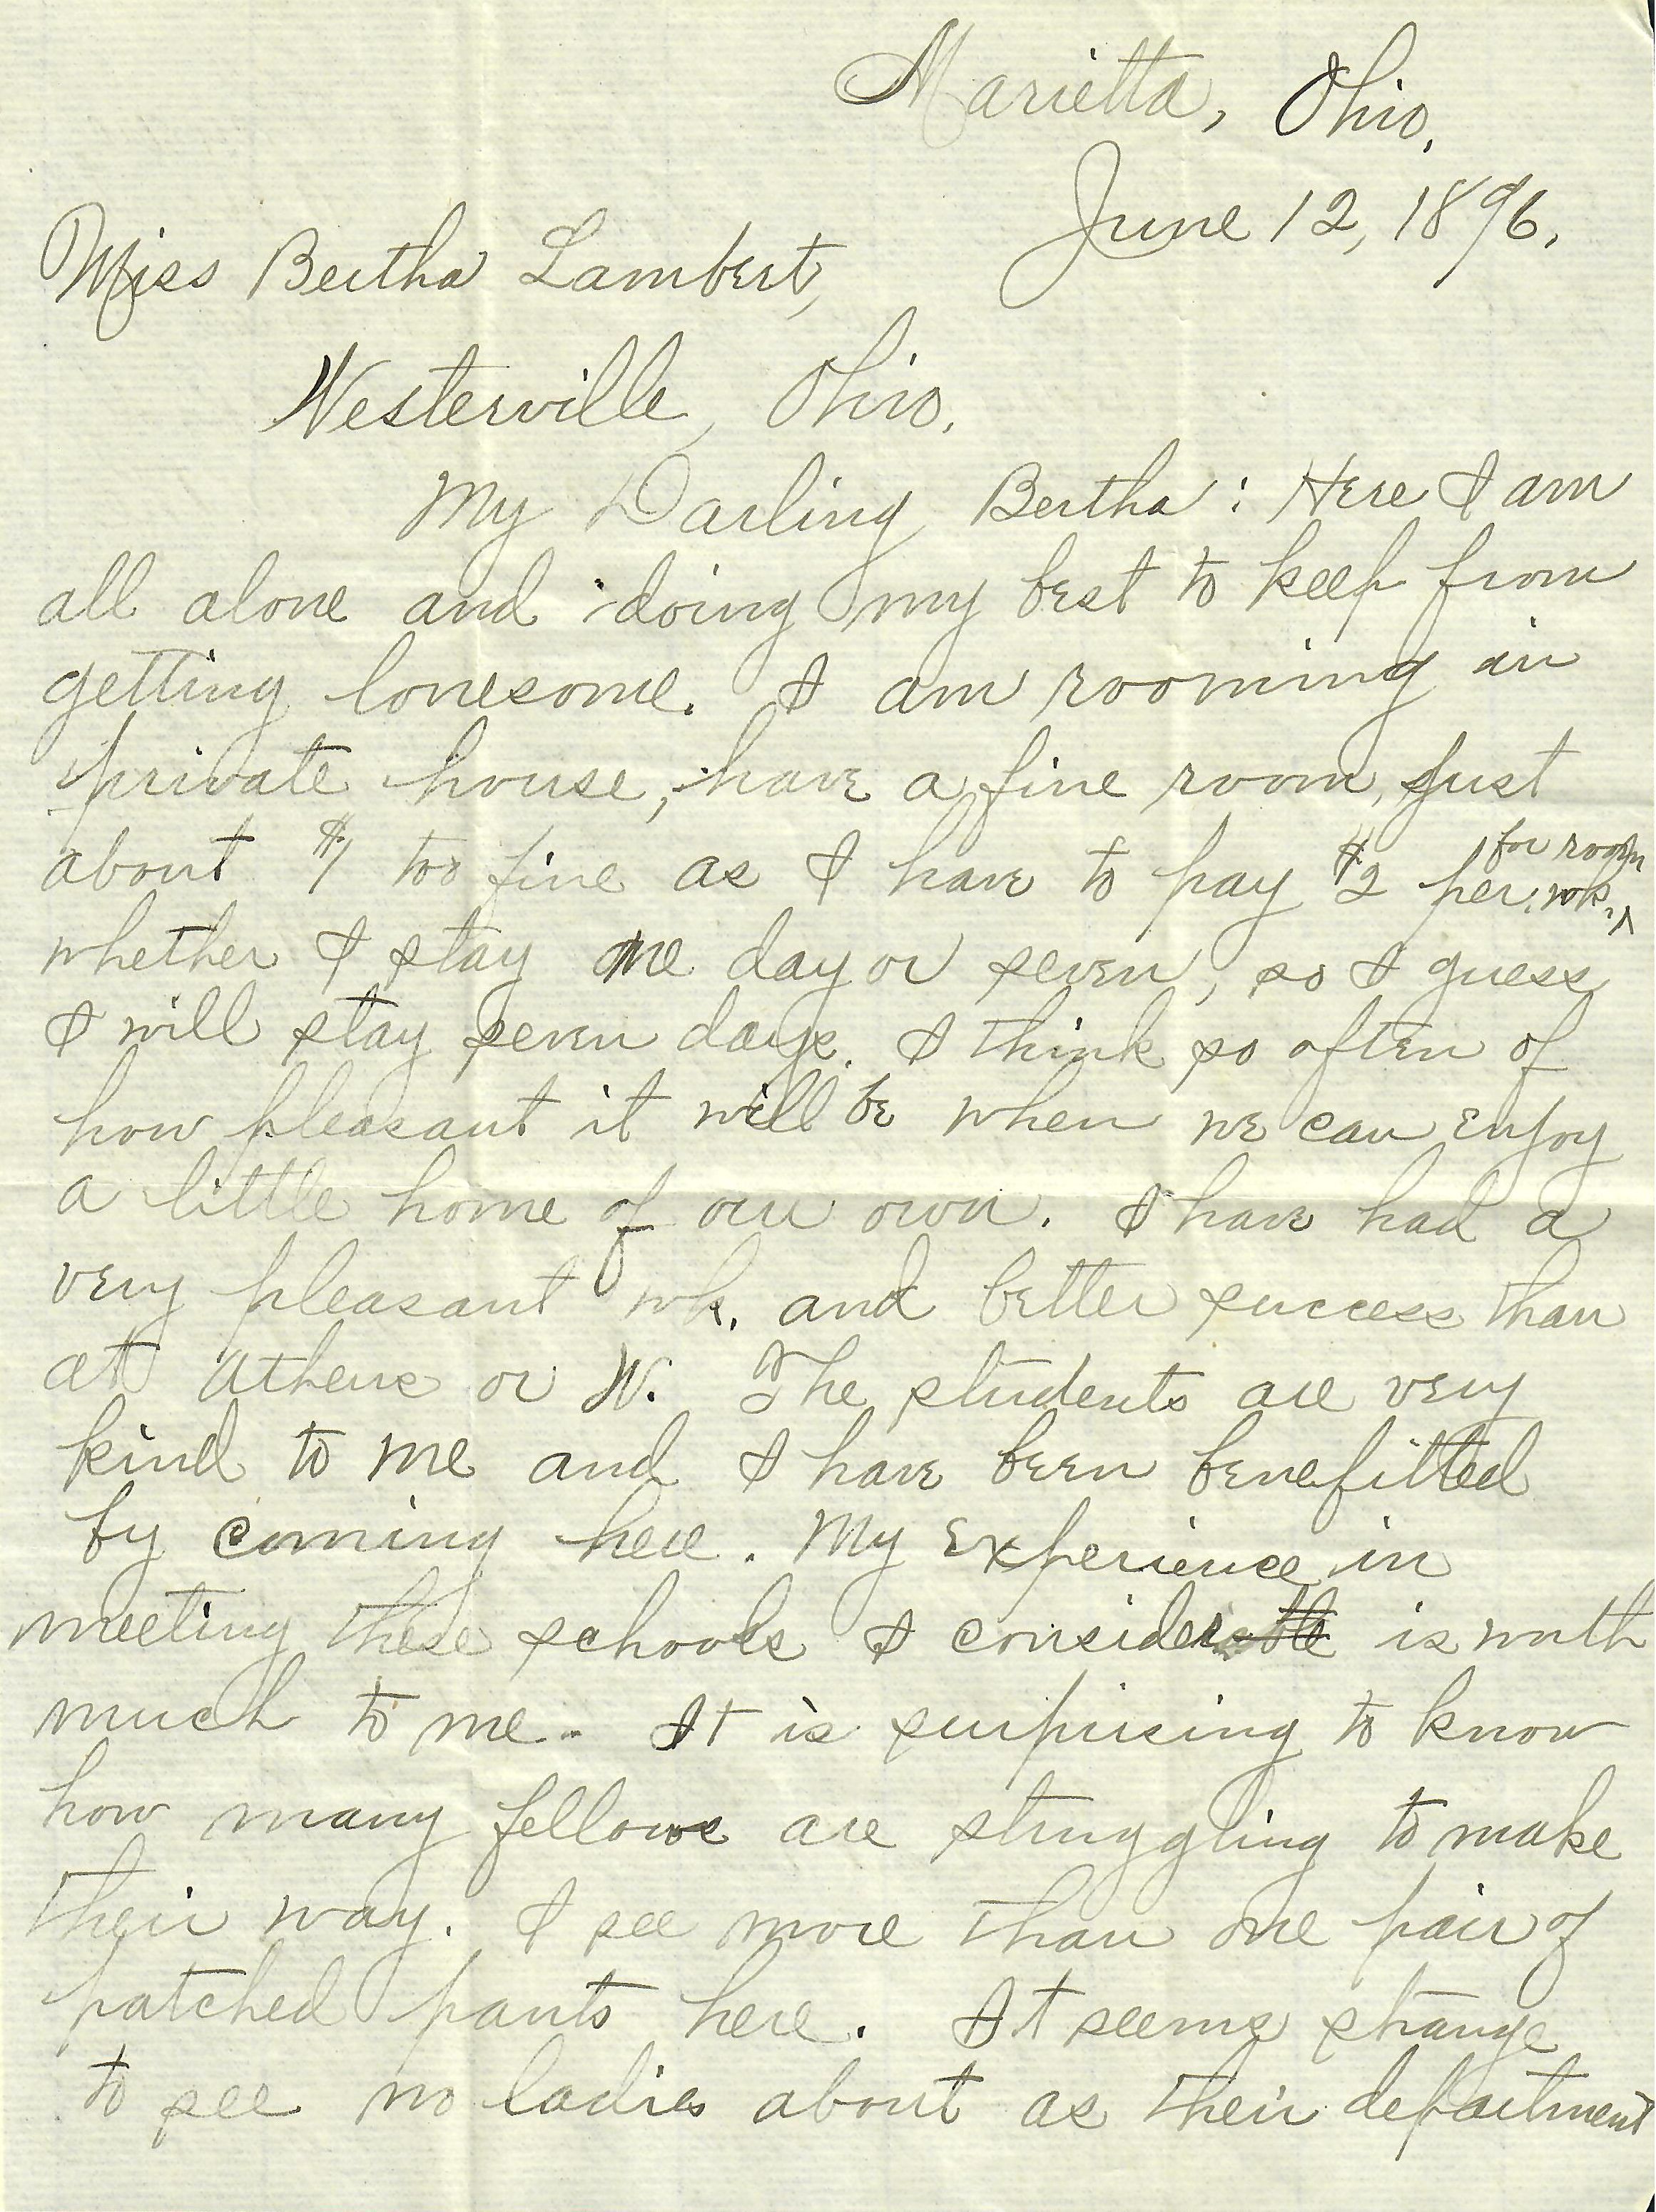 Marietta, Ohio,
June 12, 1896.
Miss Bertha Lambert,
Westerville, Ohio.
My Darling Bertha: Here I am
all alone and doing my best to keep from
getting lonesome. I am rooming in
private house, have a fine room, just
about $1 too fine as I have to pay $2 per wk. for room
whether I stay one day or seven, so I guess
I will stay seven days. I think so often of
how pleasant it will be when we can enjoy
a little home of our own. I have had a
very pleasant wk. and better success than
at Athens or W. The students are very
kind to me and I have been benefitted
by coming here. My experience in
meeting these schools I consider is worth
much to me. It is surprising to know
how many fellows are struggling to make
their way. I see more than one pair of
patched pants here. It seems strange
to see no ladies about as their department